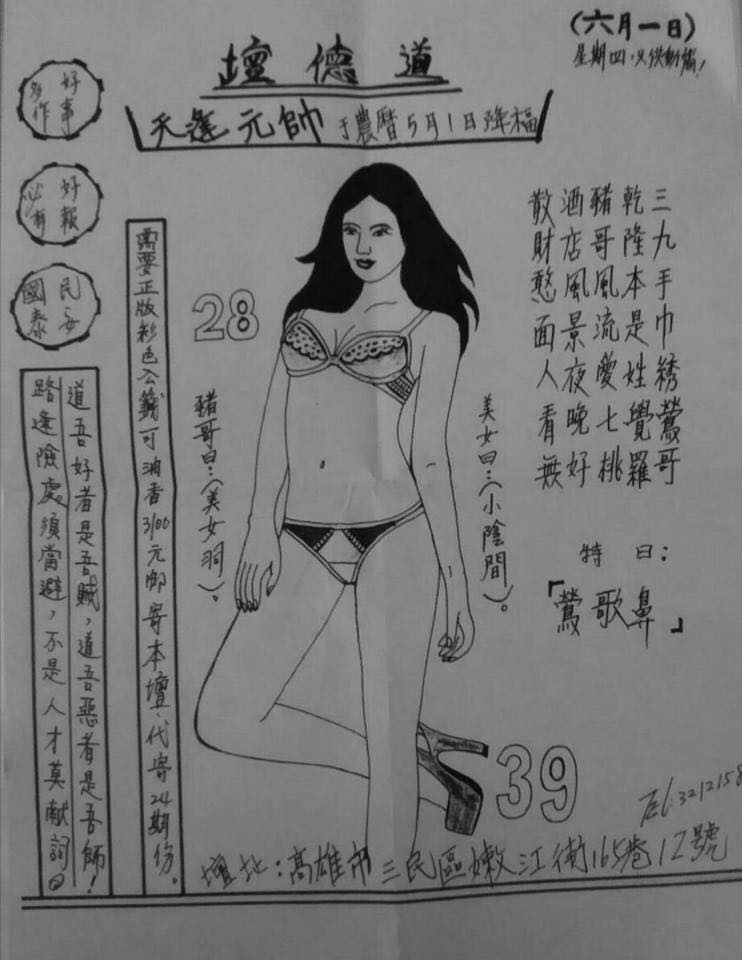 (六月一日)
星期四,只供斬猪!
壇德道
天逢元帥于農曆5月1日降福
好事
多作
好報
必有
民安
國泰
三九手巾綉鶯哥
乾隆本是姓覺羅
豬哥風流愛七桃
酒店風景夜晚好
散財憨面人看無
特曰:
「鶯歌鼻」
28
豬哥曰:(美女洞)。
美女曰:(小陰間)。
39
需要正版彩色公籤可油香3100元郵寄本壇.代寄24期份。
道吾好者是吾賊,道吾惡者是吾師!
路逢險處須當避,不是人才莫献詞曰
Tel:3212158
壇址:高雄市三民區嫩江街165巷12號